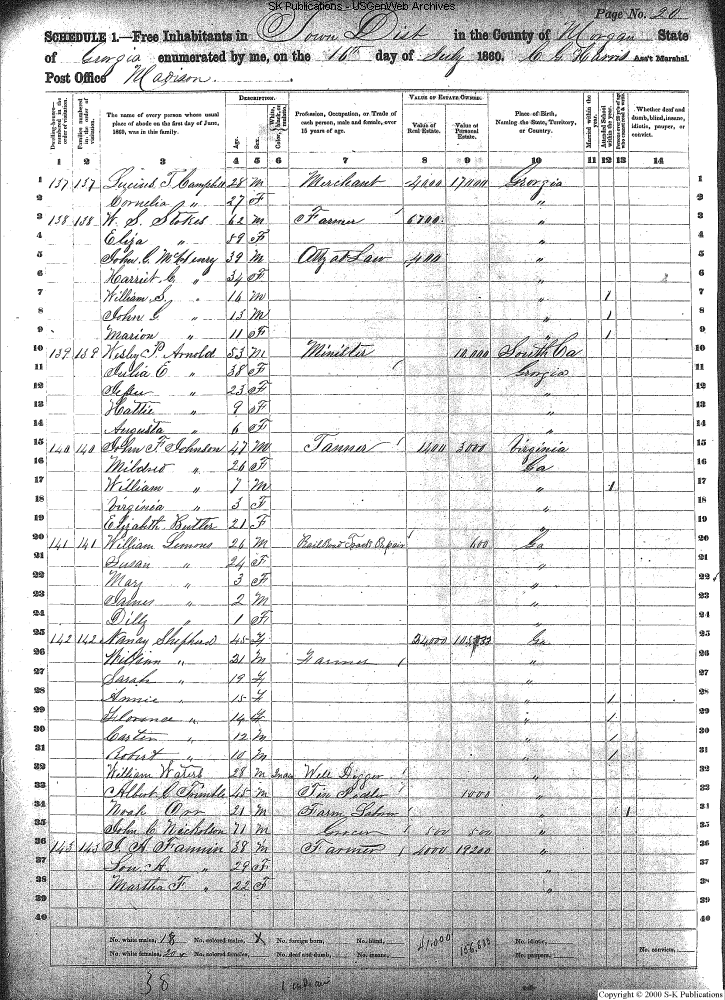 SK Publications - USGenWeb Archives
Page No. 20
SCHEDULE 1.—Free Inhabitants in Town Dist in the County of Morgan State
of Georgia enumerated by me, on the 16th day of July 1860. C G Harris Ass't Marshal.
Post Office Madison.
Dwelling-houses—numbered in the order of visitation. Families numbered in the order of visitation. The name of every person whose usual place of abode on the first day of June, 1860, was in this family. DESCRIPTION. Age. Sex. Color, White, black, or mulatto. Profession, Occupation, or Trade of each person, male and female, over 15 years of age. VALUE OF ESTATE OWNED. Value of Real Estate. Value of Personal Estate. Place of Birth, Naming the State, Territory, or Country. Married within the year. Attended School within the year. Whether deaf and dumb, blind, insane, idiotic, pauper, or convict.
1 2 3 4 5 6 7 8 9 10 11 12 13 14
1 137 137 Lucius T Campbell 28 M Merchant 4000 Georgia 1
2 Cornelia " 27 F " 2
3 138 138 W. S. Stokes 62 M Farmer 6700 " 3
4 Eliza " 59 F " 4
5 John G. McHenry 39 M Atty at Law 400 " 5
6 Harriet C " 34 F " 6
7 William S. " 16 M " 1 7
8 John G " 13 M " 1 8
9 Marion " 11 F " 1 9
10 139 139 Wesley P. Arnold 53 M Minister 10,000 South Ca 10
11 Julia E " 38 F Georgia 11
12 " 23 F " 12
13 Hattie " 9 F " 13
14 Augusta " 6 F " 14
15 140 140 John F. Johnson 47 M Tanner 1400 3000 Virginia 15
16 Mildred " 26 F Ga 16
17 William " 7 M " 1 17
18 Virginia " 3 F " 18
19 Elizabeth Butler 21 F " 19
20 141 141 William Lemons 26 M Rail Road Track Repair 600 Ga 20
21 Susan " 24 F " 21
22 Mary " 3 F " 22
23 James " 2 M " 23
24 Dilly " 1 F " 24
25 142 142 Nancy Shepherd 45 F 24000 Ga 25
26 William " 21 M Farmer " 26
27 Sarah " 19 F " 27
28 Annie " 15 F " 1 28
29 Florence " 14 F " 1 29
30 Carter " 12 M " 1 30
31 Robert " 10 M " 1 31
32 William Waters 28 M Well Digger " 32
33 Albert C 45 M Tin Pedler 1000 " 33
34 Noah Orr 21 M Farm Laborer " 1 34
35 John C Nicholson 71 M Grocer 500 500 " 35
36 143 143 J. A. Fannin 38 M Farmer 4000 19200 " 36
37 Lou A. " 29 F " 37
38 Martha F " 22 F " 38
39 39
40 40
No. white males, 18 No. colored males, X No. foreign born, No. blind, 41,000 No. idiotic,
No. white females, 20 No. colored females, No. deaf and dumb, No. insane, No. paupers, No. convicts,
38
Copyright © 2000 S-K Publications